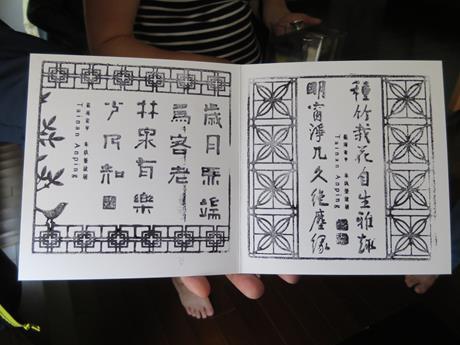 種竹栽花自生雅趣
明窗淨几久絕塵緣
Tainan Anping
歲月無端
為客老
林泉有樂
少人知
Tainan Anping